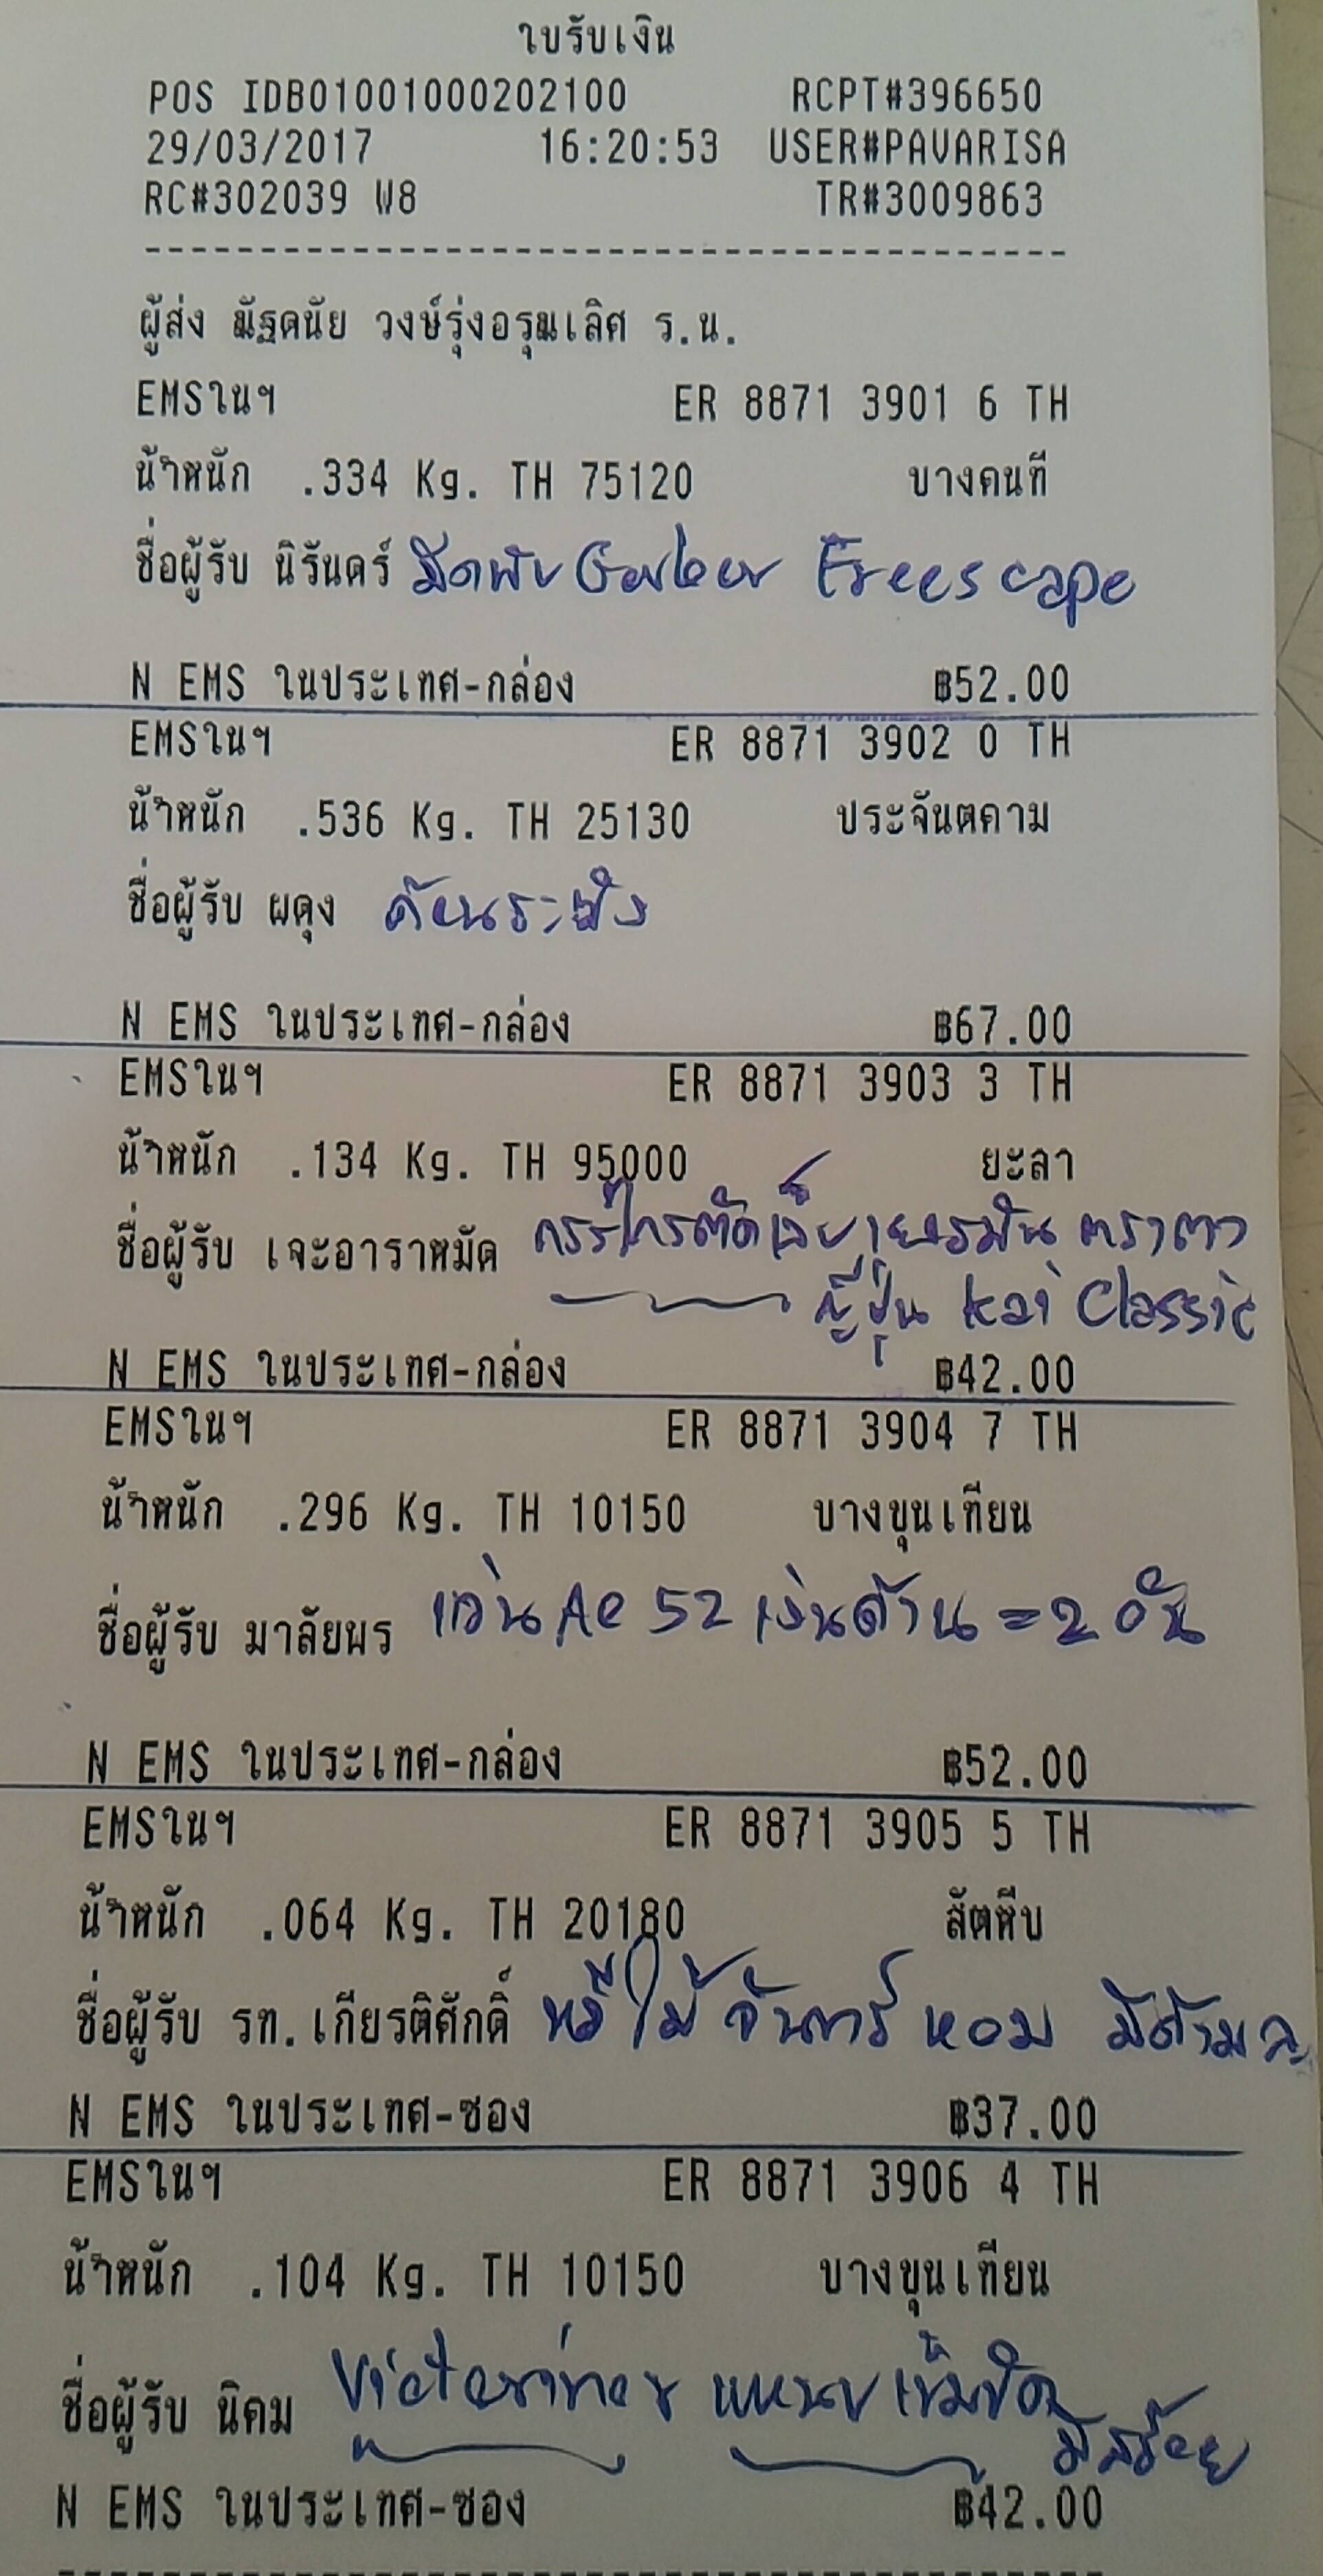 ใบรับเงิน
POS IDB01001000202100 RCPT#396650
29/03/2017 16:20:53 USER#PAVARISA
RC#302039 W8 TR#3009863
ผู้ส่ง ณัฐดนัย วงษ์รุ่งอรุณเลิศ ร.น.
EMSในฯ ER 8871 3901 6 TH
น้ำหนัก .334 Kg. TH 75120 บางคนที
ชื่อผู้รับ นิรันดร์ มีดพับ Gerber Freescape
N EMS ในประเทศ-กล่อง ฿52.00
EMSในฯ ER 8871 3902 0 TH
น้ำหนัก .536 Kg. TH 25130 ประจันตคาม
ชื่อผู้รับ ผดุง
N EMS ในประเทศ-กล่อง ฿67.00
EMSในฯ ER 8871 3903 3 TH
น้ำหนัก .134 Kg. TH 95000 ยะลา
ชื่อผู้รับ เจะอาราหมัด กรรไกรตัดเล็บเยอรมัน ตราตา
ญี่ปุ่น kai Classic
N EMS ในประเทศ-กล่อง ฿42.00
EMSในฯ ER 8871 3904 7 TH
น้ำหนัก .296 Kg. TH 10150 บางขุนเทียน
ชื่อผู้รับ มาลัยพร แว่น Ao 52 เงินด้าน = 2 อัน
N EMS ในประเทศ-กล่อง ฿52.00
EMSในฯ ER 8871 3905 5 TH
น้ำหนัก .064 Kg. TH 20180 สัตหีบ
ชื่อผู้รับ รท.เกียรติศักดิ์ หวีไม้จันทร์หอม มีด้าม
N EMS ในประเทศ-ซอง ฿37.00
EMSในฯ ER 8871 3906 4 TH
น้ำหนัก .104 Kg. TH 10150 บางขุนเทียน
ชื่อผู้รับ นิคม Victorinox แหนบ เข็มขัด
มีสร้อย
N EMS ในประเทศ-ซอง ฿42.00